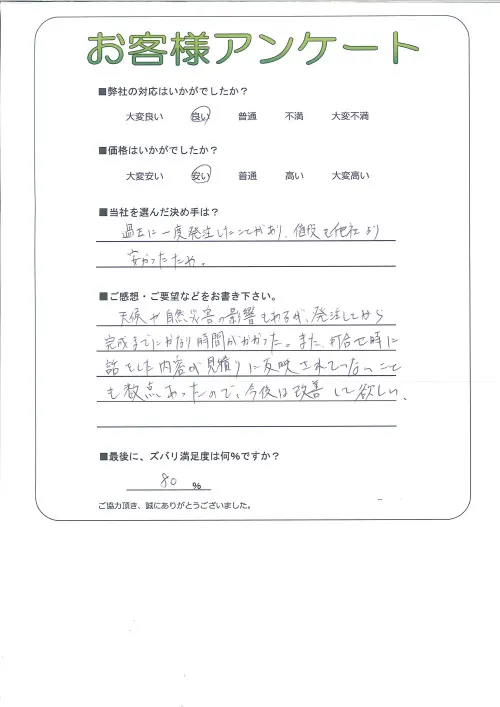 お客様アンケート
■弊社の対応はいかがでしたか？
大変良い 良い 普通 不満 大変不満
■価格はいかがでしたか？
大変安い 安い 普通 高い 大変高い
■当社を選んだ決め手は？
過去に一度発注したことがあり、値段も他社より
安かったため。
■ご感想・ご要望などをお書き下さい。
天候や自然災害の影響もあるが、発注してから
完成までにかなり時間がかかった。また、打合せ時に
話をした内容が見積りに反映されていないこと
も数点あったので、今後は改善して欲しい。
■最後に、ズバリ満足度は何%ですか？
80 %
ご協力頂き、誠にありがとうございました。